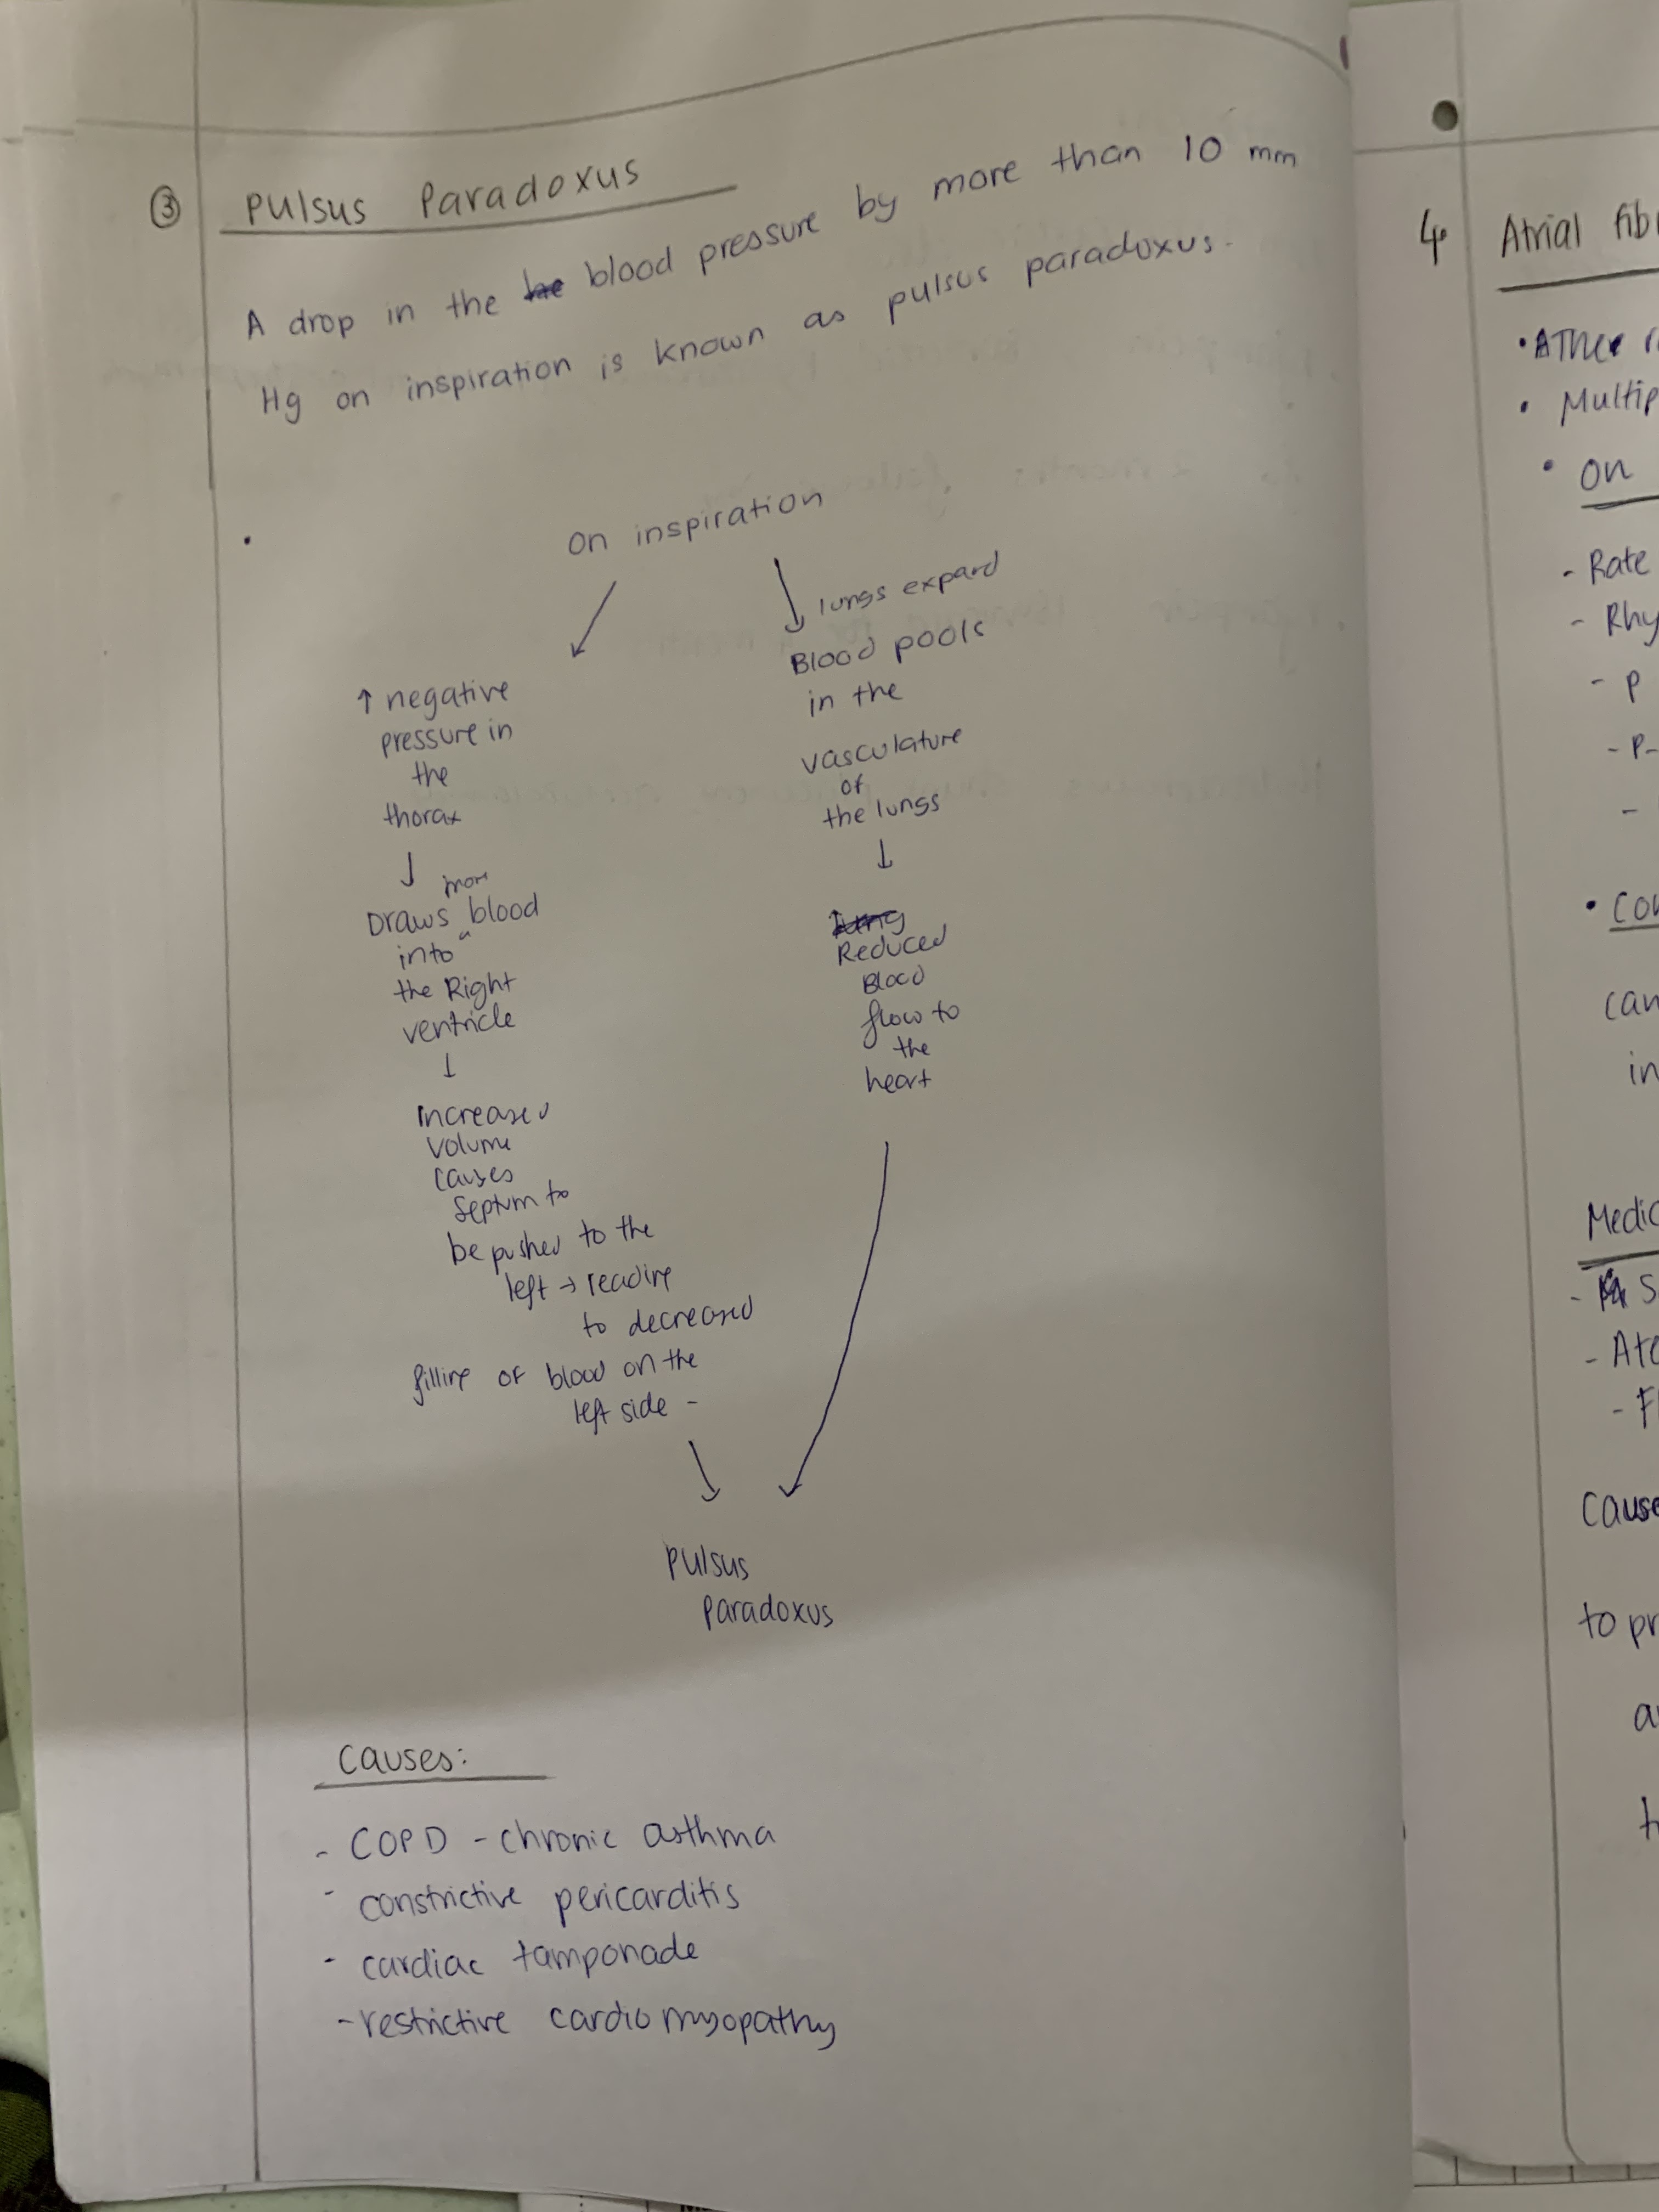 ③ Pulsus Paradoxus
A drop in the blood pressure by more than 10 mm
Hg on inspiration is known as pulsus paradoxus.
On inspiration
↑ negative
pressure in
the
thorax
↓
more
Draws blood
into
the Right
ventricle
↓
increased
volume
causes
septum to
be pushed to the
left →
to decreased
filling of blood on the
left side -
lungs expand
Blood pools
in the
vasculature
of
the lungs
↓
Reduced
Blood
flow to
the
heart
Pulsus
Paradoxus
Causes:
- COPD - chronic asthma
- constrictive pericarditis
- cardiac tamponade
- restrictive cardiomyopathy
4. Atrial
•
•
• On
- Rate
-
- P
- P-
-
•
can
in
-
-
-
to